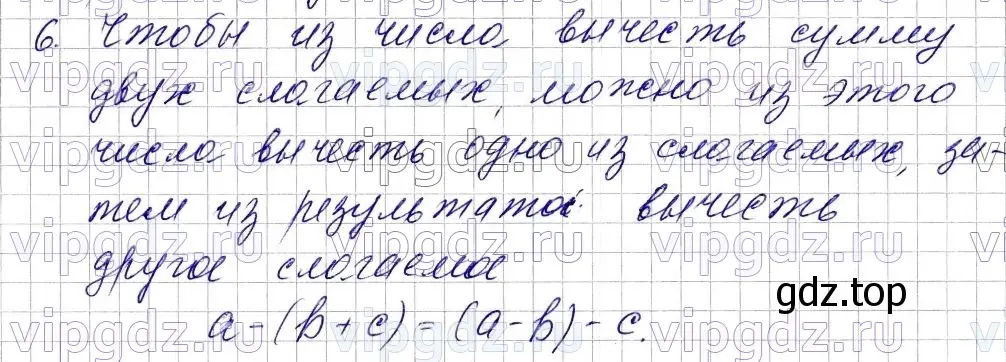 6. Чтобы из числа вычесть сумму
двух слагаемых, можно из этого
числа вычесть одно из слагаемых, за-
тем из результата вычесть
другое слагаемое
a - (b + c) = (a - b) - c.
gdz.top
vipgdz.ru vipgdz.ru vipgdz.ru vipgdz.ru